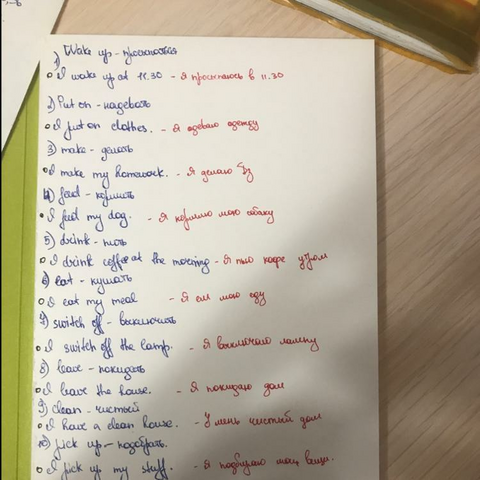 1) Wake up - просыпаться
I wake up at 11.30 - я просыпаюсь в 11.30
2) Put on - надевать
I put on clothes. - я одеваю одежду
3) make - делать
I make my homework. - я делаю
4) feed - кормить
I feed my dog. - я кормлю мою собаку
5) drink - пить
I drink coffee at the morning - я пью кофе утром
6) eat - кушать
I eat my meal - я ем мою еду
7) switch off - выключить
I switch off the lamp. - я выключаю лампу
8) leave - покидать
I leave the house. - я покидаю дом
9) clean - чистый
I have a clean house. - У мень чистый дом
10) pick up - подобрать.
I pick up my stuff. - я подбираю мои вещи.